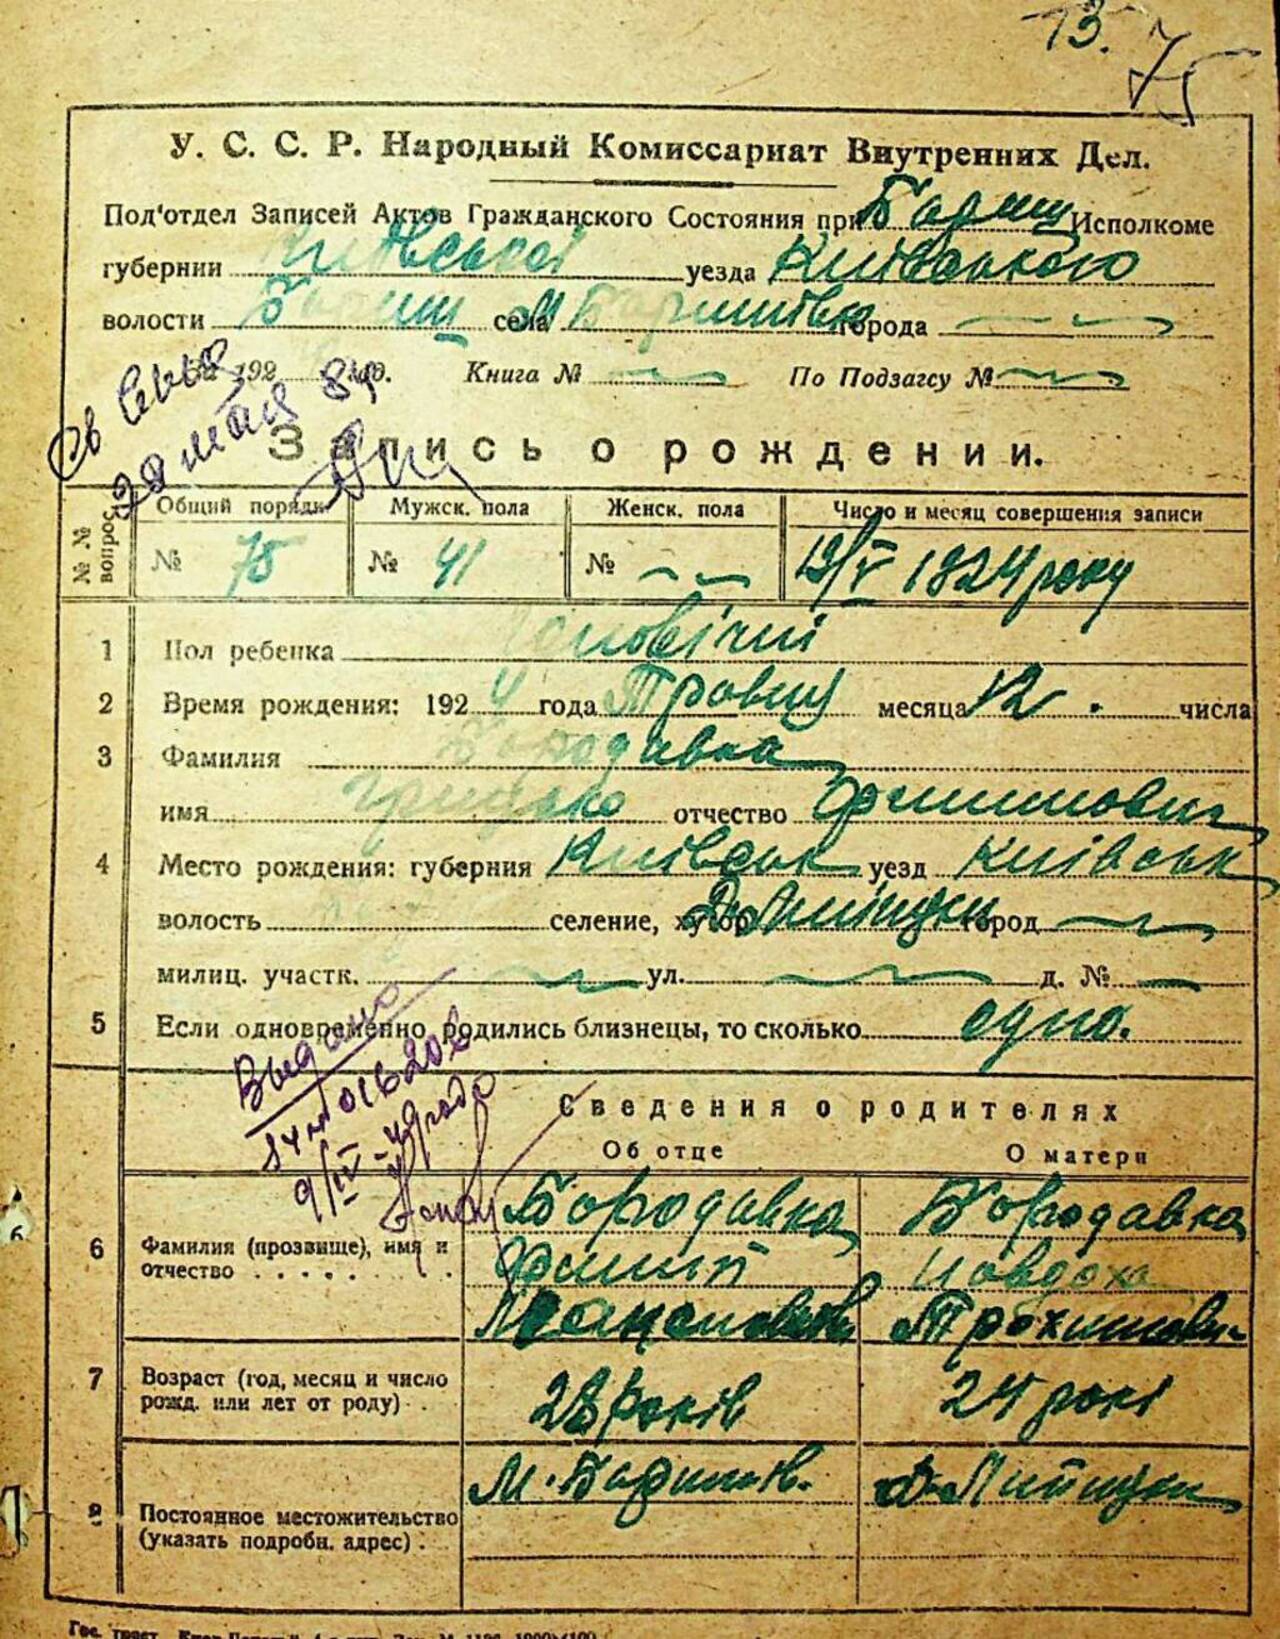 13. 75
У. С. С. Р. Народный Комиссариат Внутренних Дел.
Под'отдел Записей Актов Гражданского Состояния при Бариш Исполкоме
губернии Київської уезда Київського
волости Бариш села М Баришівка города
192 год. Книга № По Подзагсу №
29 мая 84
Запись о рождении.
№ № вопрос. Общий порядк. Мужск. пола Женск. пола Число и месяц совершения записи
№ 75 № 41 № 19/V 1924 року
1 Пол ребенка чоловічий
2 Время рождения: 1924 года Травня месяца 12. числа
3 Фамилия Бородавка
имя Грицько отчество Филипович
4 Место рождения: губерния Київськ уезд Київськ
волость селение, хутор город
милиц. участк. ул. д. №
5 Если одновременно родились близнецы, то сколько одно.
Выдано
9/IV-49 года
Сведения о родителях
Об отце О матери
6 Фамилия (прозвище), имя и отчество . . . . . . . . Бородавка Бородавка
Филип Иовдоха
Трохимовн
7 Возраст (год, месяц и число рожд. или лет от роду) . 28 років 24 рокі
8 Постоянное местожительство (указать подробн. адрес) . М. Баришів.